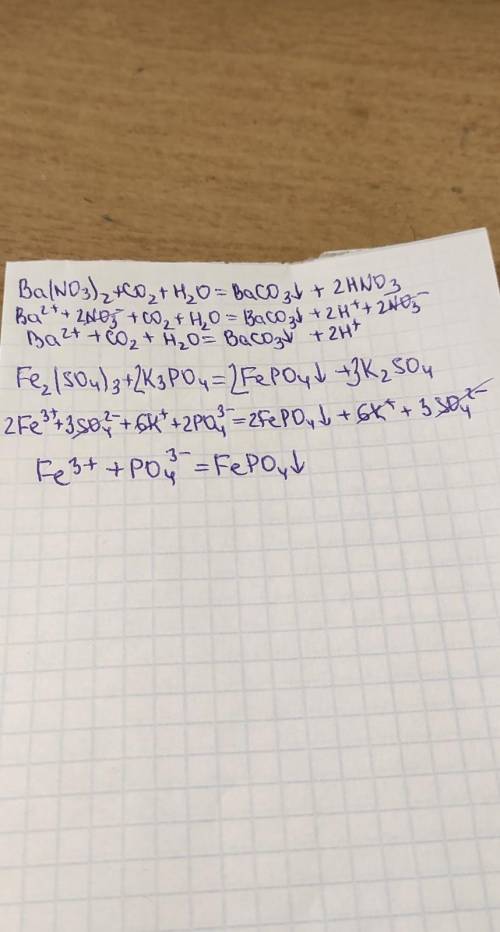 Ba(NO₃)₂+CO₂+H₂O=BaCO₃↓+2HNO₃
Ba²⁺+2NO₃⁻+CO₂+H₂O=BaCO₃↓+2H⁺+2NO₃⁻
Ba²⁺+CO₂+H₂O=BaCO₃↓+2H⁺
Fe₂(SO₄)₃+2K₃PO₄=2FePO₄↓+3K₂SO₄
2Fe³⁺+3SO₄²⁻+6K⁺+2PO₄³⁻=2FePO₄↓+6K⁺+3SO₄²⁻
Fe³⁺+PO₄³⁻=FePO₄↓